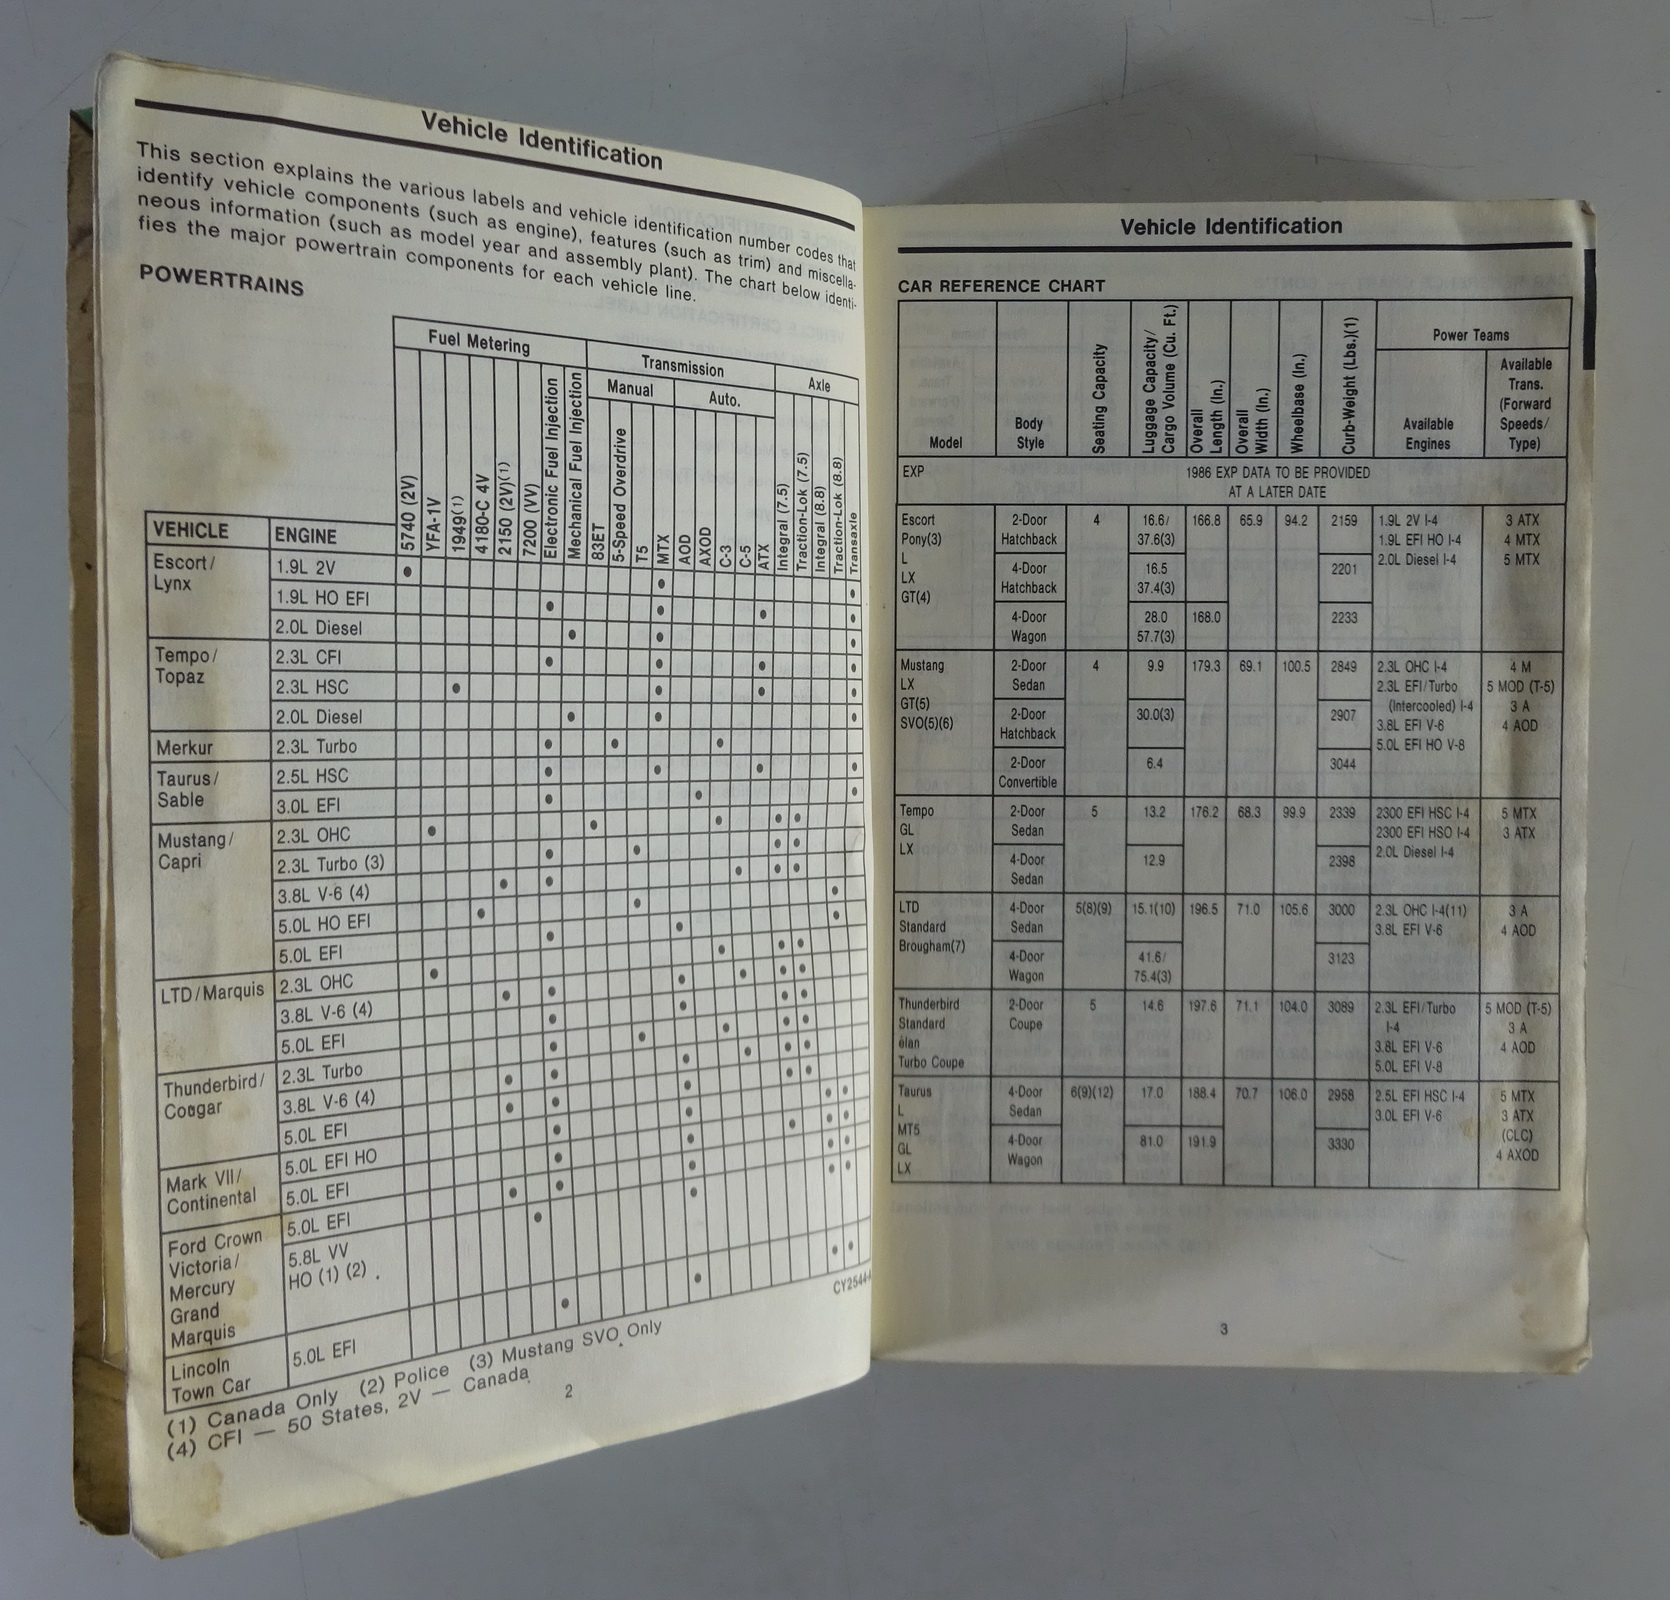 Vehicle Identification
This section explains the various labels and vehicle identification number codes that
identify vehicle components (such as engine), features (such as trim) and miscella-
neous information (such as model year and assembly plant). The chart below identi-
fies the major powertrain components for each vehicle line.
POWERTRAINS
Fuel Metering Transmission Axle
Manual Auto.
VEHICLE ENGINE 5740 (2V) YFA-1V 1949(1) 4180-C 4V 2150 (2V)(1) 7200 (VV) Electronic Fuel Injection Mechanical Fuel Injection 83ET 5-Speed Overdrive T5 MTX AOD AXOD C-3 C-5 ATX Integral (7.5) Traction-Lok (7.5) Integral (8.8) Traction-Lok (8.8) Transaxle
Escort/ 1.9L 2V
Lynx 1.9L HO EFI
2.0L Diesel
Tempo/ 2.3L CFI
Topaz 2.3L HSC
2.0L Diesel
Merkur 2.3L Turbo
Taurus/ 2.5L HSC
Sable 3.0L EFI
Mustang/ 2.3L OHC
Capri 2.3L Turbo (3)
3.8L V-6 (4)
5.0L HO EFI
5.0L EFI
LTD/Marquis 2.3L OHC
3.8L V-6 (4)
5.0L EFI
Thunderbird/ 2.3L Turbo
Cougar 3.8L V-6 (4)
5.0L EFI
Mark VII/ 5.0L EFI HO
Continental 5.0L EFI
Ford Crown 5.0L EFI
Victoria/ 5.8L VV
Mercury HO (1) (2)
Grand
Marquis
Lincoln 5.0L EFI
Town Car
CY2544-
(1) Canada Only (2) Police (3) Mustang SVO Only
(4) CFI — 50 States, 2V — Canada
2
Vehicle Identification
CAR REFERENCE CHART
Model Body Style Seating Capacity Luggage Capacity/ Cargo Volume (Cu. Ft.) Overall Length (In.) Overall Width (In.) Wheelbase (In.) Curb-Weight (Lbs.)(1) Power Teams
Available Engines Available Trans. (Forward Speeds/ Type)
EXP 1986 EXP DATA TO BE PROVIDED
AT A LATER DATE
Escort 2-Door 4 16.6/ 166.8 65.9 94.2 2159 1.9L 2V I-4 3 ATX
Pony(3) Hatchback 37.6(3) 1.9L EFI HO I-4 4 MTX
L 4-Door 16.5 2201 2.0L Diesel I-4 5 MTX
LX Hatchback 37.4(3)
GT(4) 4-Door 28.0 168.0 2233
Wagon 57.7(3)
Mustang 2-Door 4 9.9 179.3 69.1 100.5 2849 2.3L OHC I-4 4 M
LX Sedan 2.3L EFI/Turbo 5 MOD (T-5)
GT(5) 2-Door 30.0(3) 2907 (Intercooled) I-4 3 A
SVO(5)(6) Hatchback 3.8L EFI V-6 4 AOD
5.0L EFI HO V-8
2-Door 6.4 3044
Convertible
Tempo 2-Door 5 13.2 176.2 68.3 99.9 2339 2300 EFI HSC I-4 5 MTX
GL Sedan 2300 EFI HSO I-4 3 ATX
LX 4-Door 12.9 2398 2.0L Diesel I-4
Sedan
LTD 4-Door 5(8)(9) 15.1(10) 196.5 71.0 105.6 3000 2.3L OHC I-4(11) 3 A
Standard Sedan 3.8L EFI V-6 4 AOD
Brougham(7) 4-Door 41.6/ 3123
Wagon 75.4(3)
Thunderbird 2-Door 5 14.6 197.6 71.1 104.0 3089 2.3L EFI/Turbo 5 MOD (T-5)
Standard Coupe I-4 3 A
élan 3.8L EFI V-6 4 AOD
Turbo Coupe 5.0L EFI V-8
Taurus 4-Door 6(9)(12) 17.0 188.4 70.7 106.0 2958 2.5L EFI HSC I-4 5 MTX
L Sedan 3.0L EFI V-6 3 ATX
MT5 4-Door 81.0 191.9 3330 (CLC)
GL Wagon 4 AXOD
LX
3